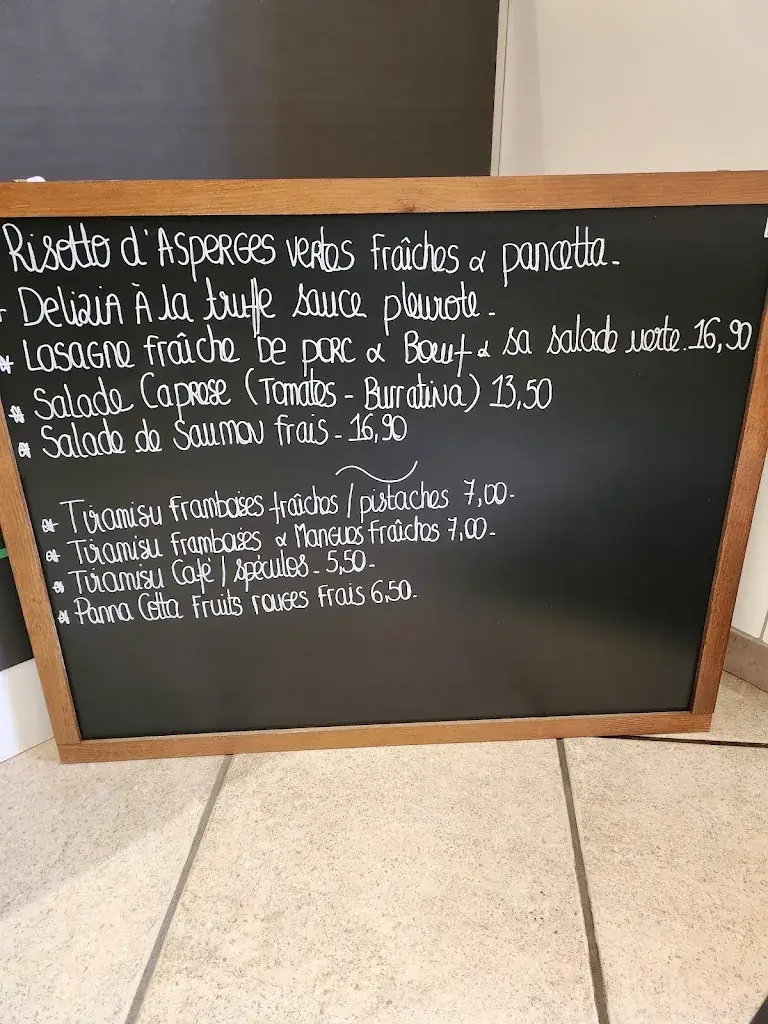 Risotto d'Asperges vertes fraîches & pancetta.
- Delizia À la truffe sauce pleurote.
* Lasagne fraîche de porc & Bœuf & sa salade verte. 16,90
* Salade Caprese (Tomates - Burratina) 13,50
* Salade de Saumon frais - 16,90
* Tiramisu Framboises fraîches / pistaches 7,00-
* Tiramisu Framboises & Mangues fraîches 7,00-
* Tiramisu Café / spéculos - 5,50-
* Panna Cotta Fruits rouges frais 6,50-